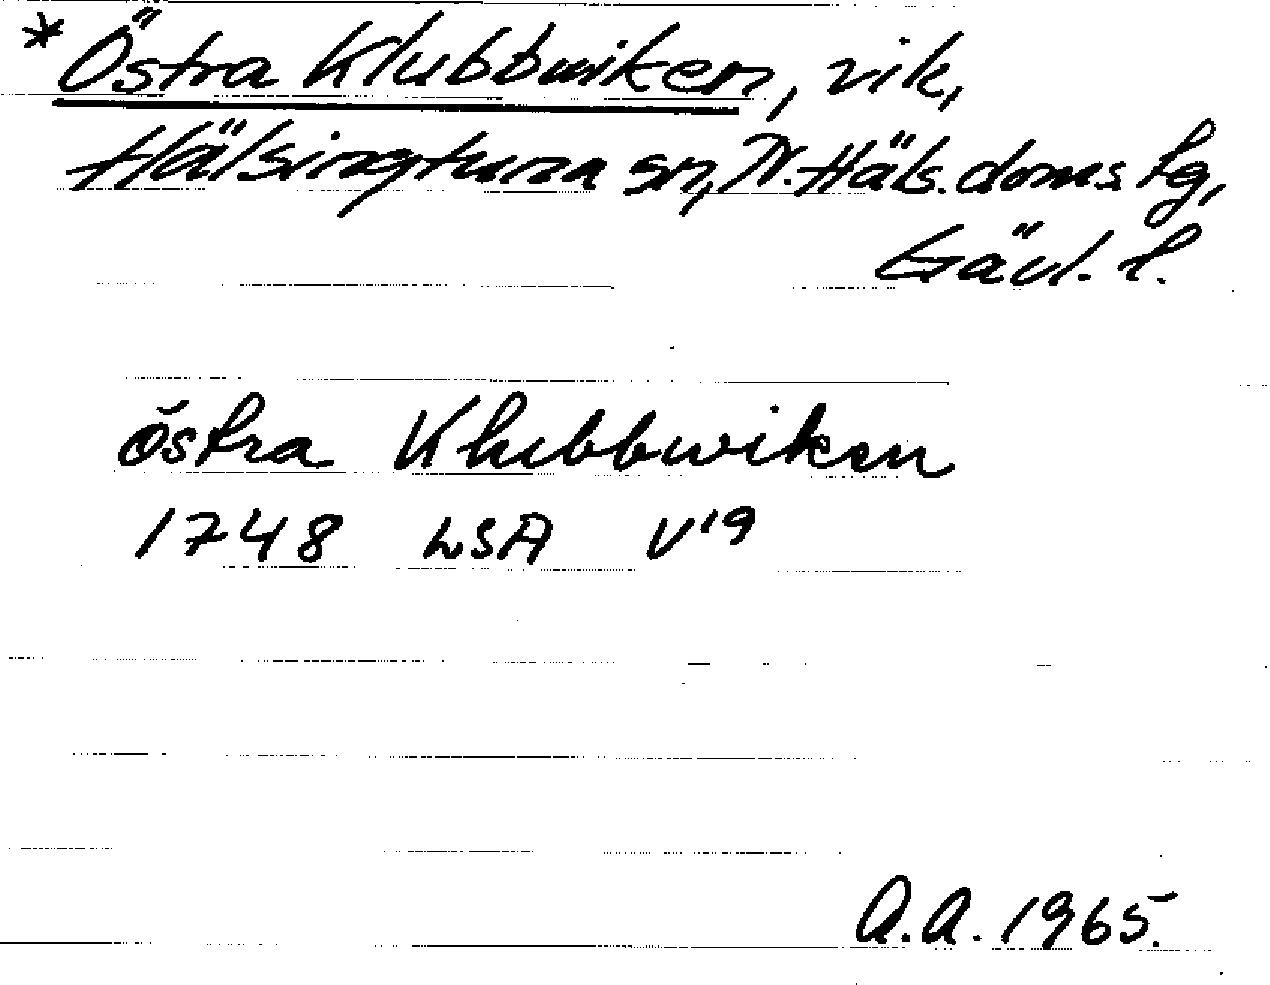 *Östra Klubbwiken, vik,
Hälsingtuna sn, N. Häls. doms. tg,
Gävl. l.
östra Klubbwiken
1748 LSA V19
A.A. 1965.